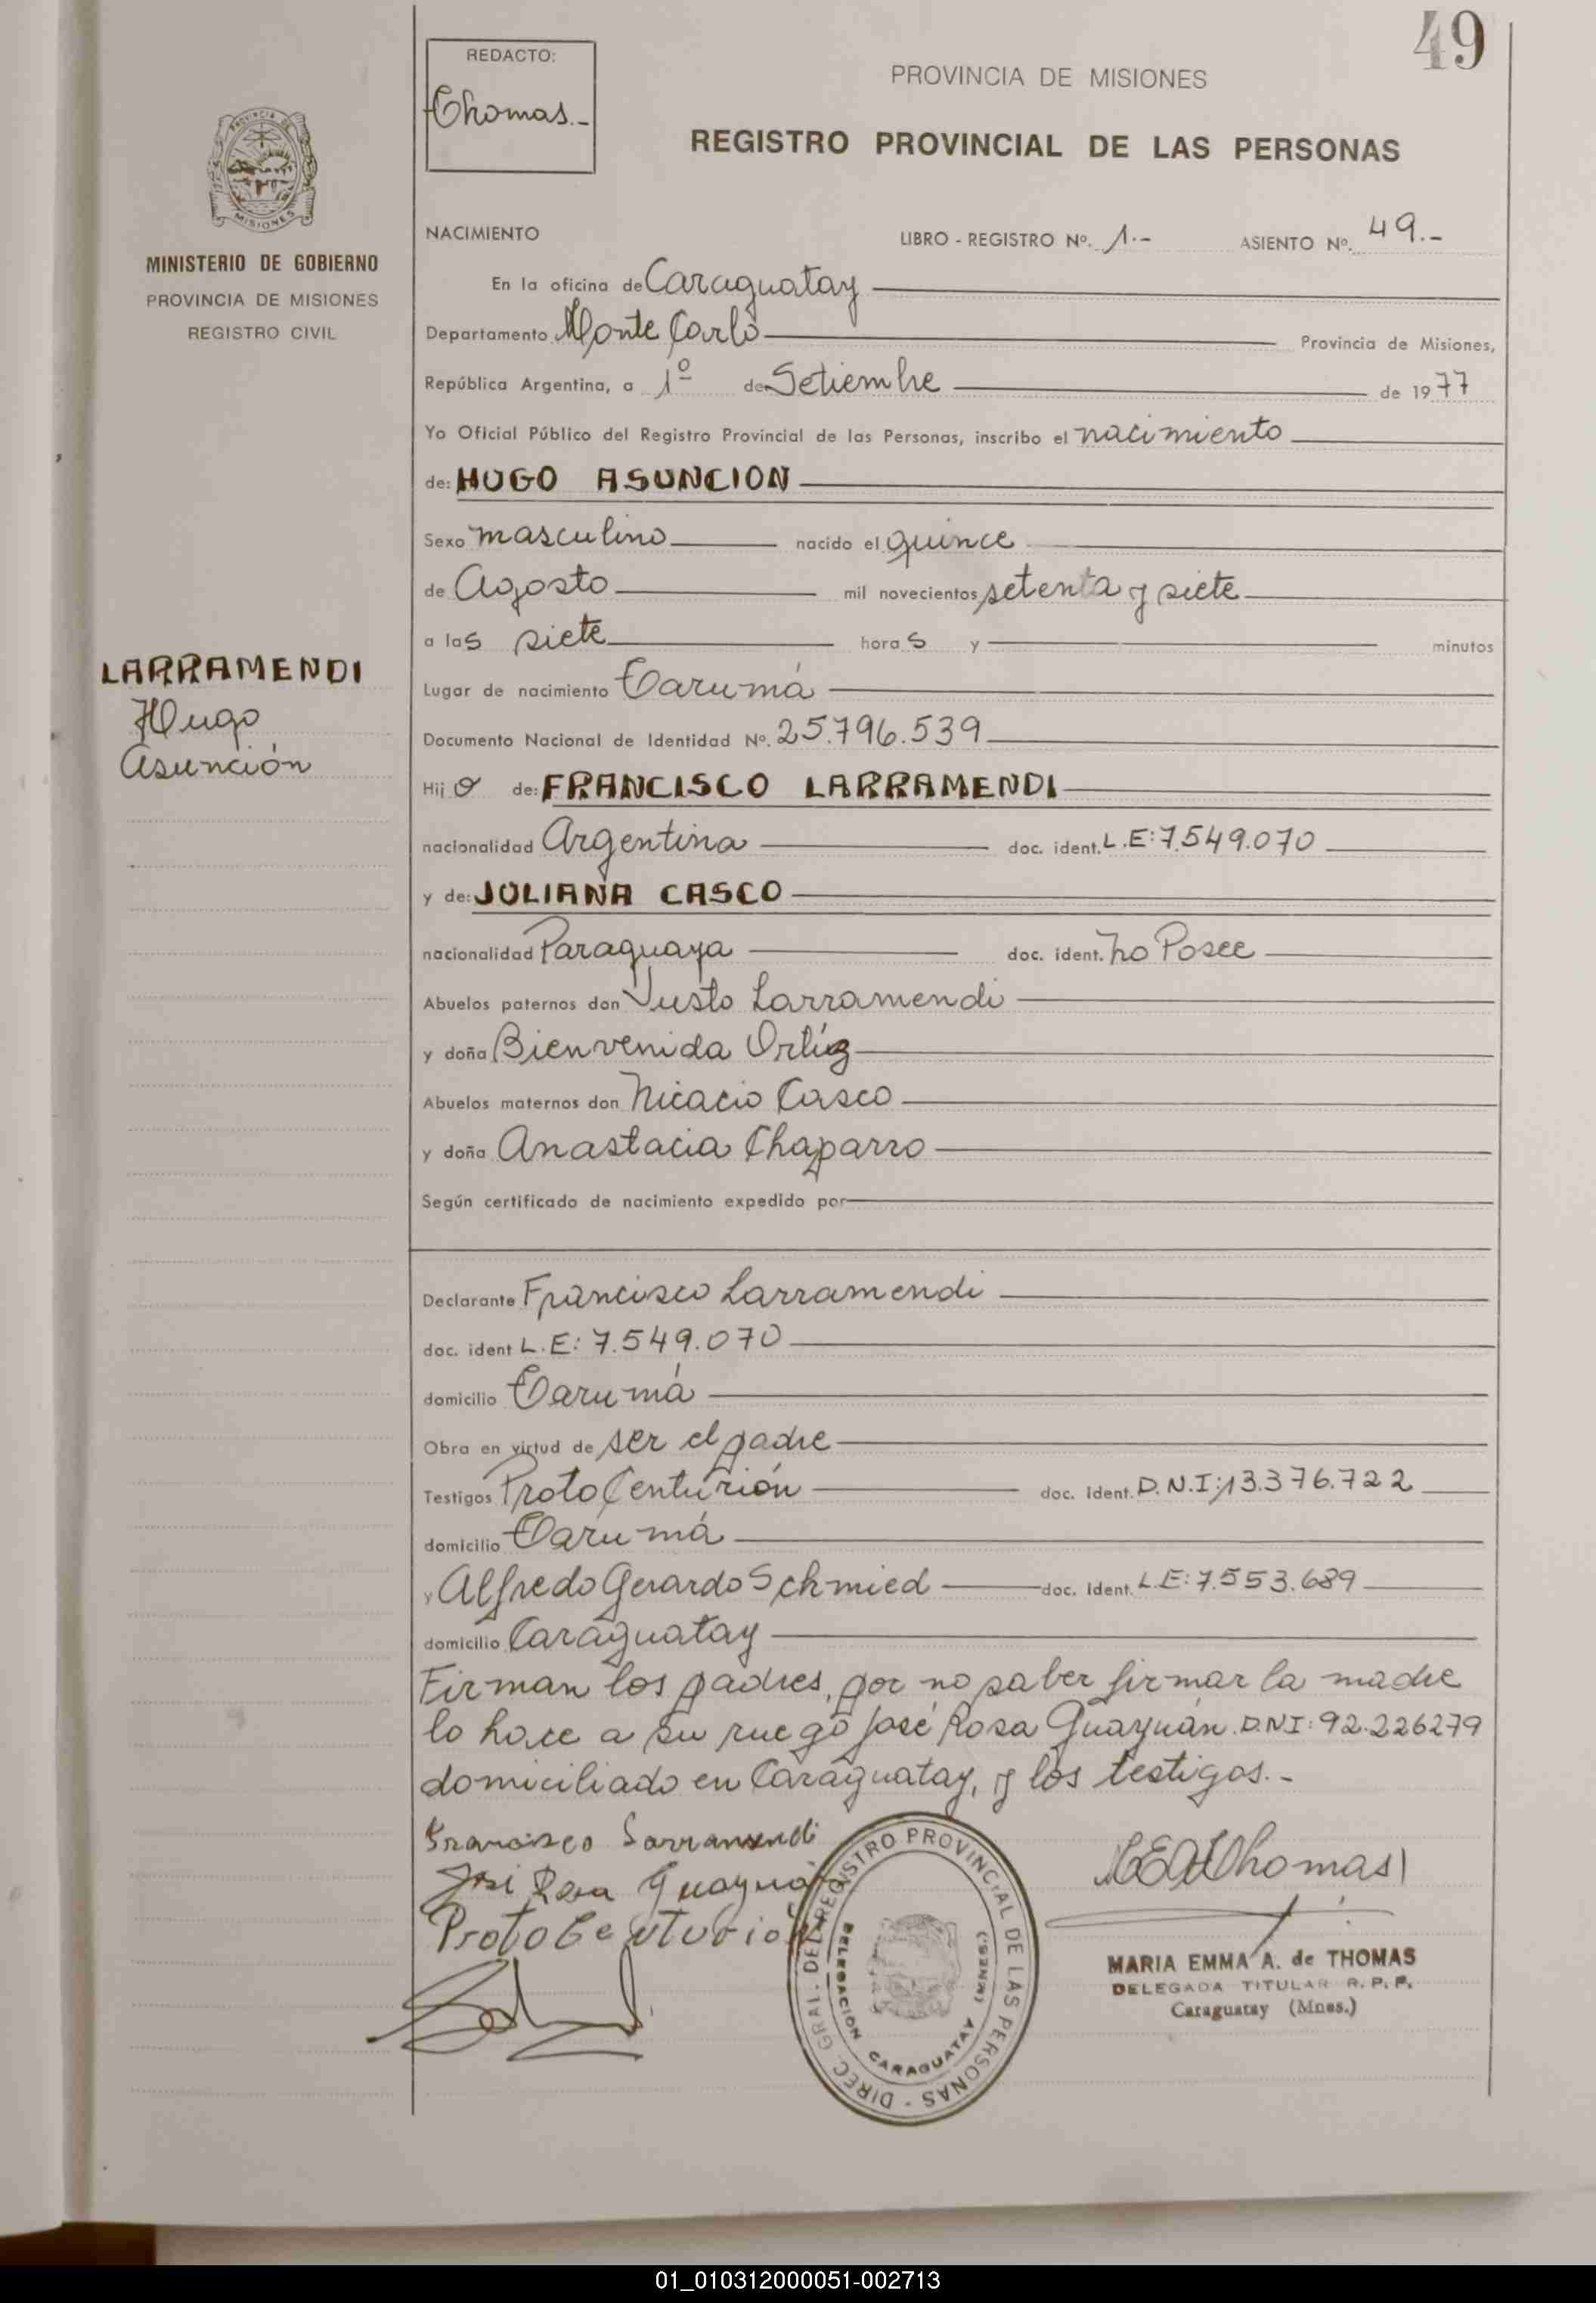 49
REDACTO:
Thomas.-
PROVINCIA DE MISIONES
REGISTRO PROVINCIAL DE LAS PERSONAS
PROVINCIA DE
MISIONES
MINISTERIO DE GOBIERNO
PROVINCIA DE MISIONES
REGISTRO CIVIL
NACIMIENTO LIBRO - REGISTRO Nº. 1.- ASIENTO Nº. 49.-
En la oficina de Caraguatay
Departamento Monte Carlo Provincia de Misiones,
República Argentina, a 1º de Setiembre de 1977
Yo Oficial Público del Registro Provincial de las Personas, inscribo el nacimiento
de: HUGO ASUNCION
Sexo masculino nacido el quince
de Agosto mil novecientos setenta y siete
a las siete horas y minutos
LARRAMENDI
Hugo
Asunción
Lugar de nacimiento Tarumá
Documento Nacional de Identidad Nº. 25.796.539
Hijo de: FRANCISCO LARRAMENDI
nacionalidad Argentina doc. ident. L.E: 7.549.070
y de: JULIANA CASCO
nacionalidad Paraguaya doc. ident. no Posee
Abuelos paternos don Justo Larramendi
y doña Bienvenida Ortíz
Abuelos maternos don Nicacio Casco
y doña Anastacia Chaparro
Según certificado de nacimiento expedido por
Declarante Francisco Larramendi
doc. ident L.E: 7.549.070
domicilio Tarumá
Obra en virtud de ser el padre
Testigos Proto Centurión doc. Ident. D.N.I: 13.376.722
domicilio Tarumá
y Alfredo Gerardo Schmied doc. Ident. L.E: 7.553.689
domicilio Caraguatay
Firman los padres, por no saber firmar la madre
lo hace a su ruego José Rosa Guayuán. D.N.I: 92.226279
domiciliado en Caraguatay, y los testigos.-
Francisco Larramendi
José Rosa Guayuá
Proto Centurión
DIREC. GRAL. DEL REGISTRO PROVINCIAL DE LAS PERSONAS -
DELEGACION CARAGUATAY (MNES.)
Thomas
MARIA EMMA A. de THOMAS
DELEGADA TITULAR R. P. P.
Caraguatay (Mnes.)
01_010312000051-002713